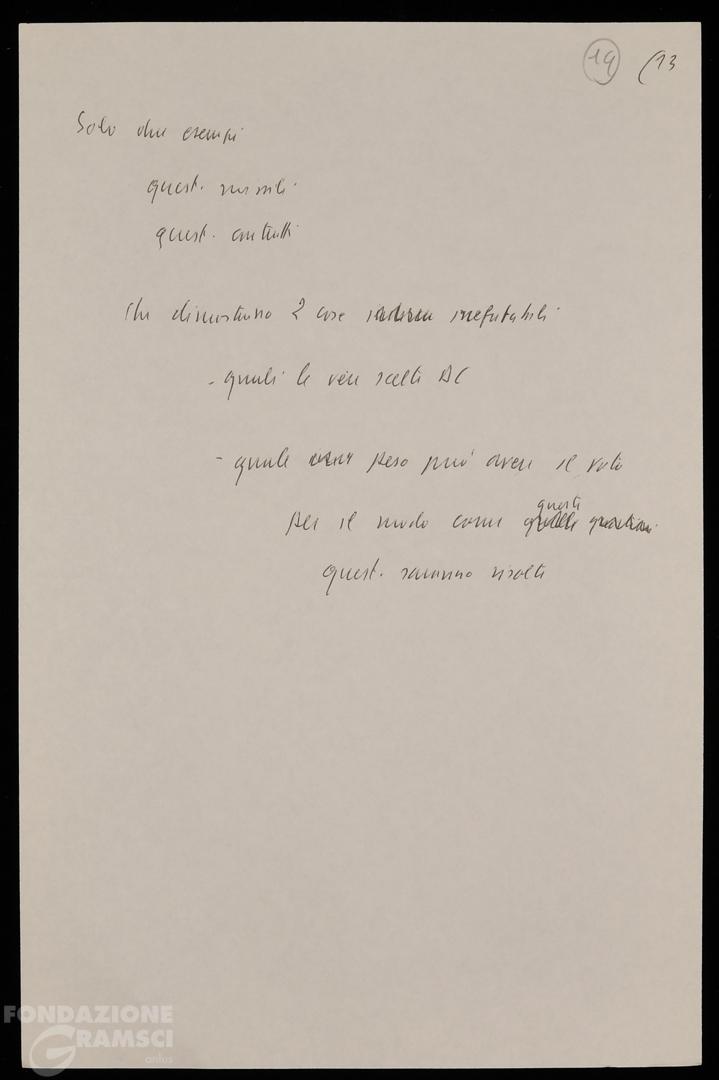 19 (13
Solo due esempi
quest. missili
quest. contratti
Che dimostrano 2 cose irrefutabili
- quali le vere scelte DC
- quale peso può avere il voto
queste
per il modo come quelle question.
quest. saranno risolte
FONDAZIONE
GRAMSCI
onlus